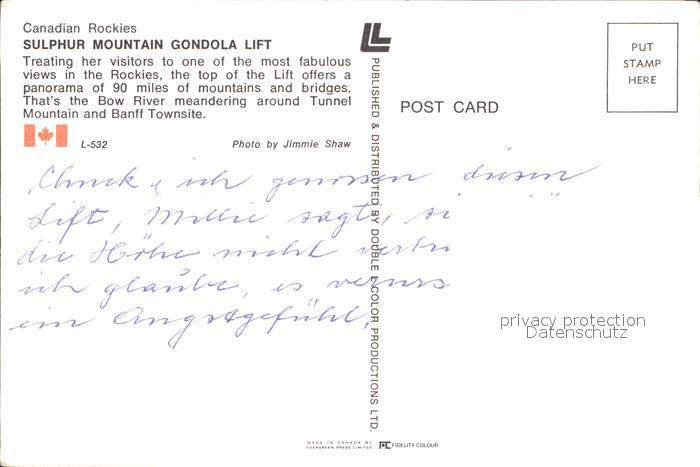 Canadian Rockies
SULPHUR MOUNTAIN GONDOLA LIFT
Treating her visitors to one of the most fabulous
views in the Rockies, the top of the Lift offers a
panorama of 90 miles of mountains and bridges.
That's the Bow River meandering around Tunnel
Mountain and Banff Townsite.
L-532
Photo by Jimmie Shaw
LL
PUBLISHED & DISTRIBUTED BY DOUBLE L COLOR PRODUCTIONS LTD.
POST CARD
PUT
STAMP
HERE
Chuck & ich genossen diesen
Lift, Millie sagt, si
die Höhe nicht vertra
ich glaube, es verurs
ein Angstgefühl.
privacy protection
Datenschutz
MADE IN CANADA BY
EVERGREEN PRESS LIMITED
FIDELITY COLOUR